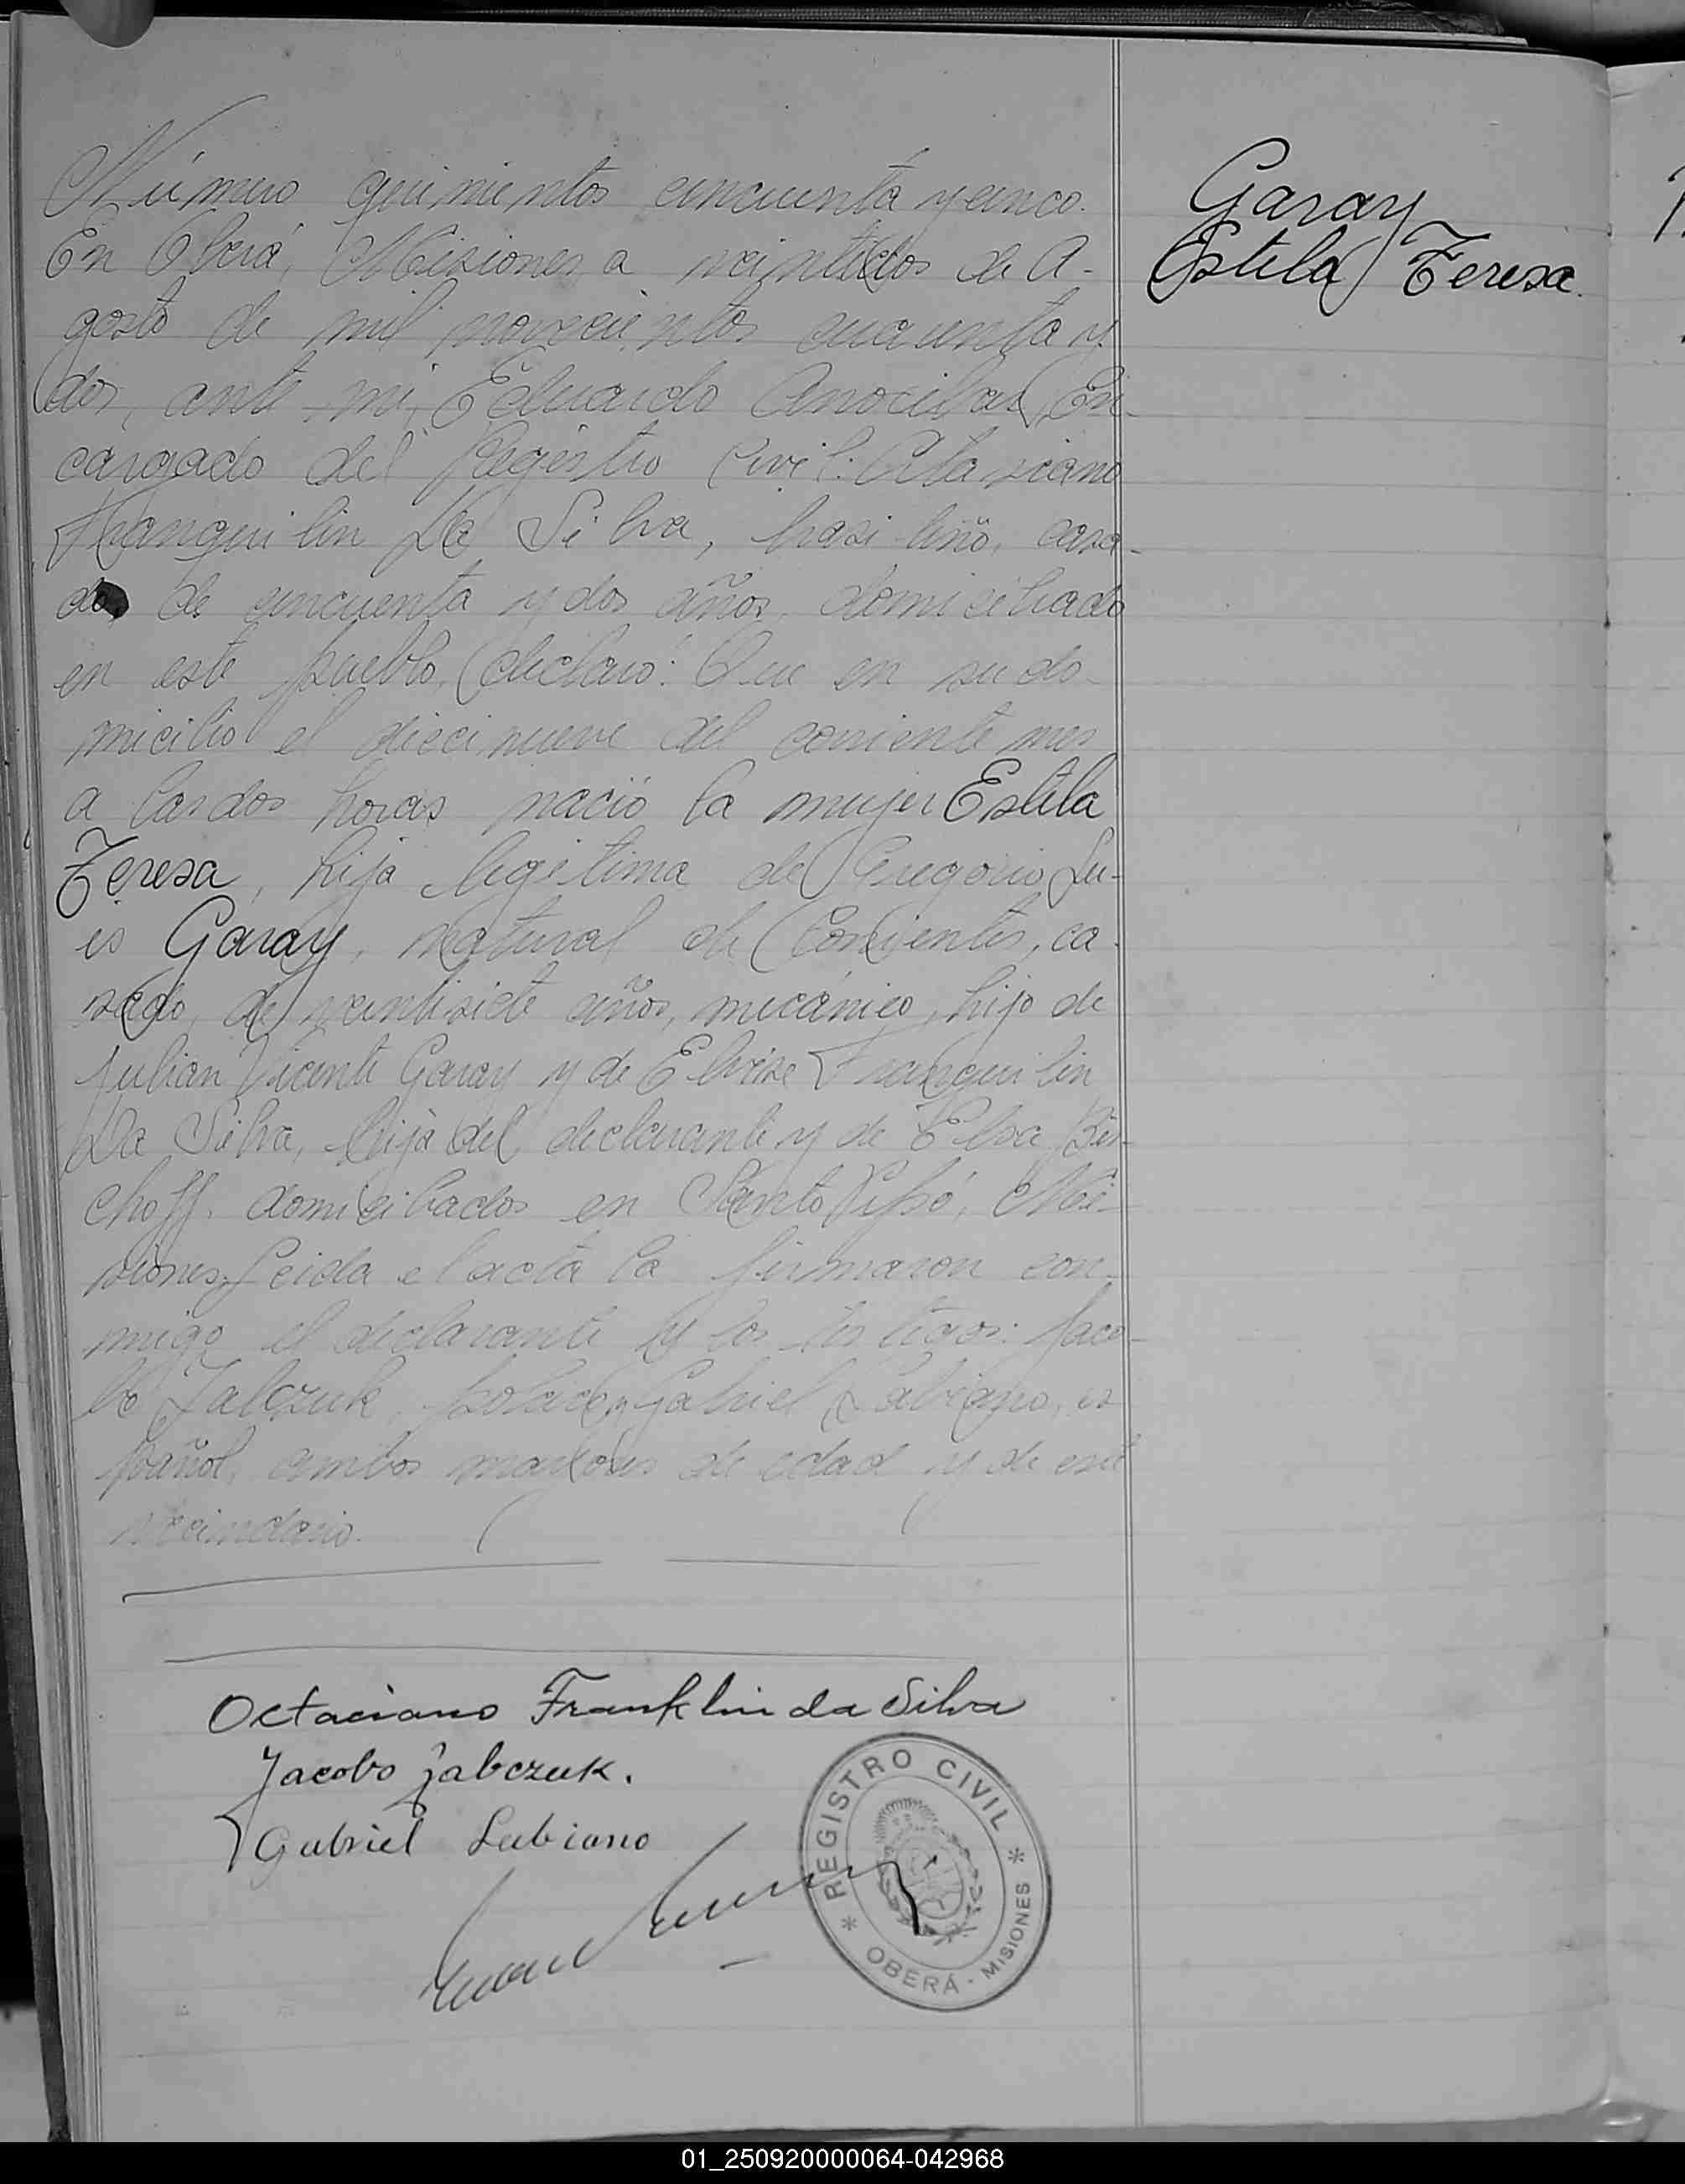 Número quinientos cincuenta y cinco.
En Oberá, Misiones, a veintidos de A-
gosto de mil novecientos cincuenta y
dos, ante mi, Eduardo Anocibar, En-
cargado del Registro Civil:
Franquilin Da Silva, brasileño, casa-
do, de cincuenta y dos años, domiciliado
en este pueblo, declaró: Que en su do-
micilio el diecinueve del corriente mes
a las dos horas nació la mujer Estela
Teresa, hija legitima de Gregorio Lu-
is Garay, natural de Corrientes, ca-
sado, de veintisiete años, mecánico, hijo de
Julian Vicente Garay y de Franquilin
Da Silva, hija del declarante y de Elsa Bis-
choff. domiciliados en Santo Pipó, Mi-
siones. Leida el acta la firmaron con-
migo el declarante y los testigos: Jaco-
bo Jabczuk, polaco y Gabriel Labiano, es-
pañol, ambos mayores de edad y de este
vecindario.
Garay
Estela Teresa.
Octaciano Franklin da Silva
Jacobo Jabczuk.
Gabriel Labiano
* REGISTRO CIVIL *
OBERÁ - MISIONES
01_250920000064-042968